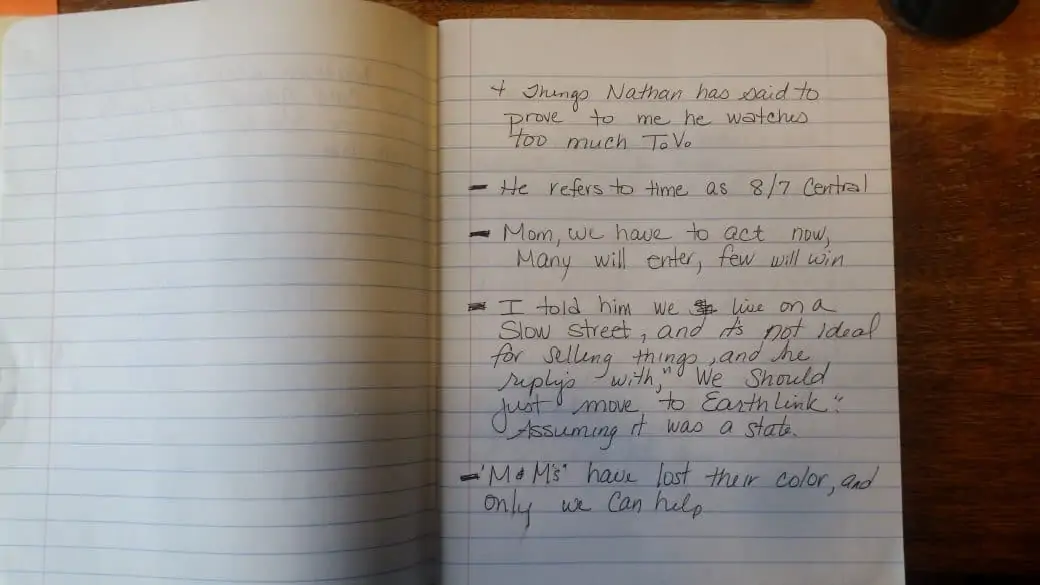 + Things Nathan has said to
prove to me he watches
too much T.V.
- He refers to time as 8/7 Central
- Mom, we have to act now,
Many will enter, few will win
- I told him we live on a
Slow street, and it's not ideal
for selling things, and he
reply's with, "We Should
just move to Earthlink".
Assuming it was a state.
- "M & M's" have lost their color, and
only we can help